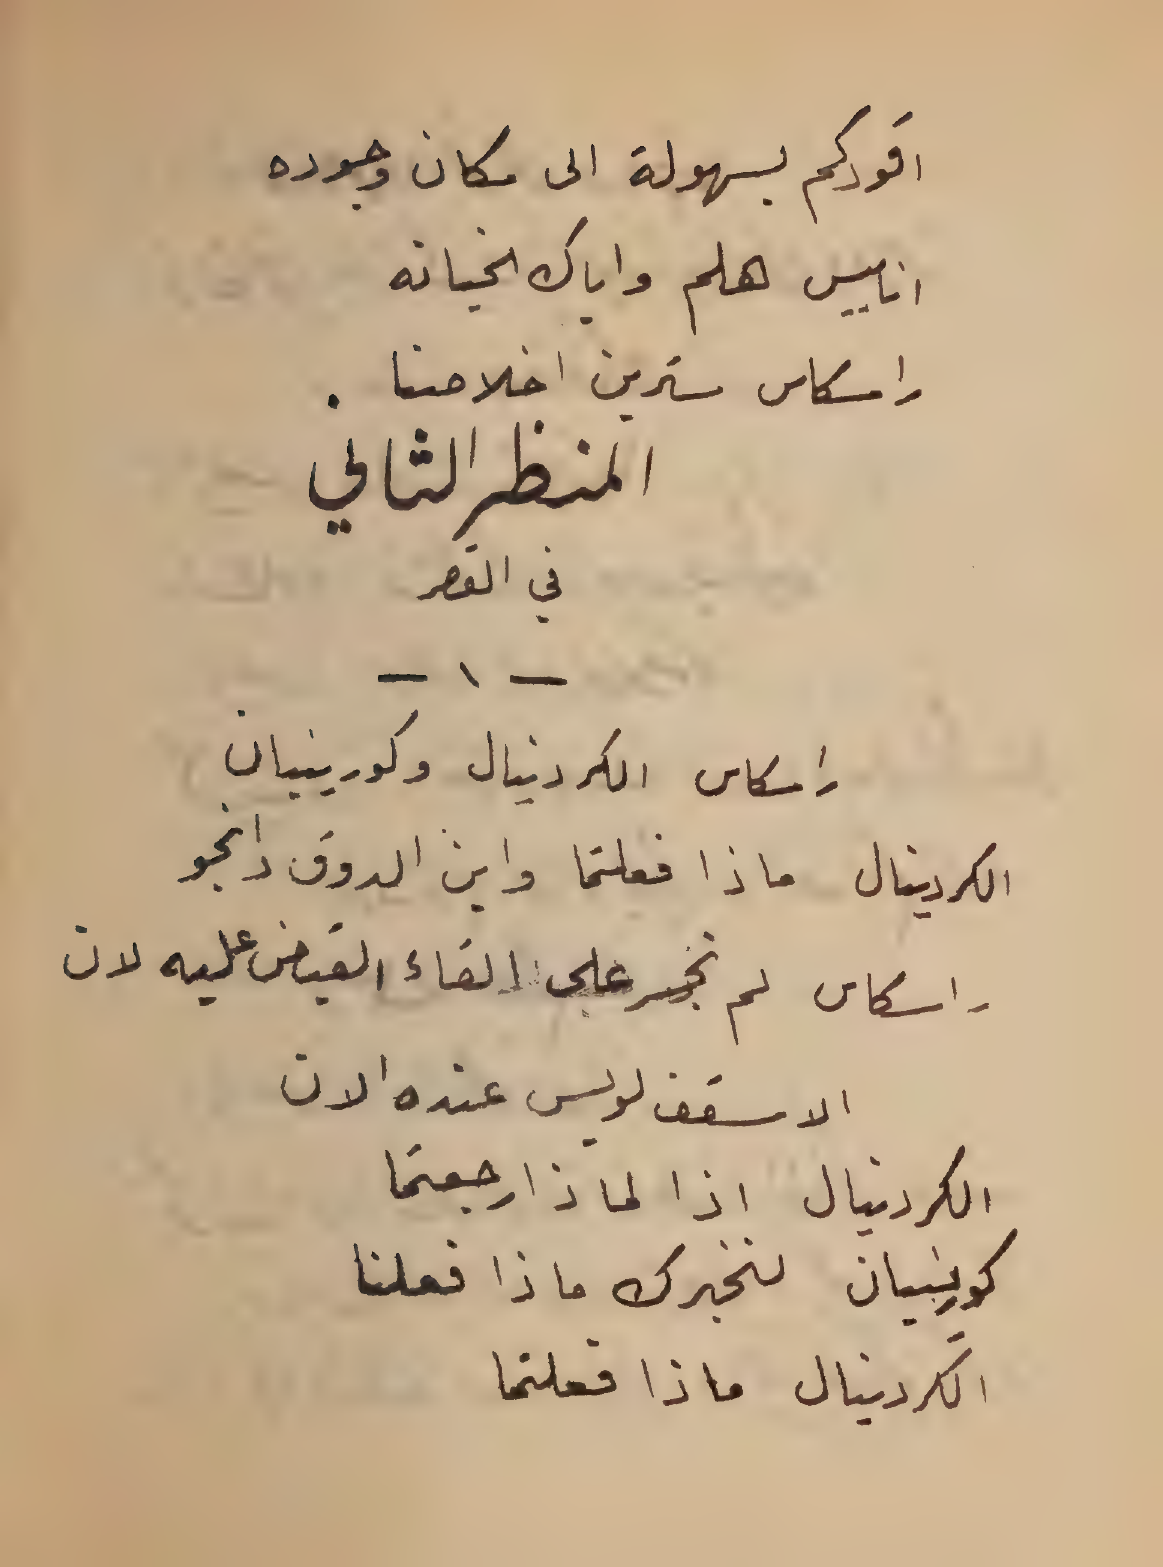 اقودكم بسهولة الى مكان وجوده
انابيس هلم واياك الخيانه
راسكاس سترين اخلاصنا .
المنظر الثاني
في القصر
— ١ —
راسكاس الكردينال وكورينيان
الكردينال ماذا فعلتما واين الدوق دانجو
راسكاس لم نجسر على القاء القبض عليه لان
الاسقف لويس عنده الان
الكردينال اذا لماذا رجعتما
كورينيان لنخبرك ماذا فعلنا
الكردينال ماذا فعلتما